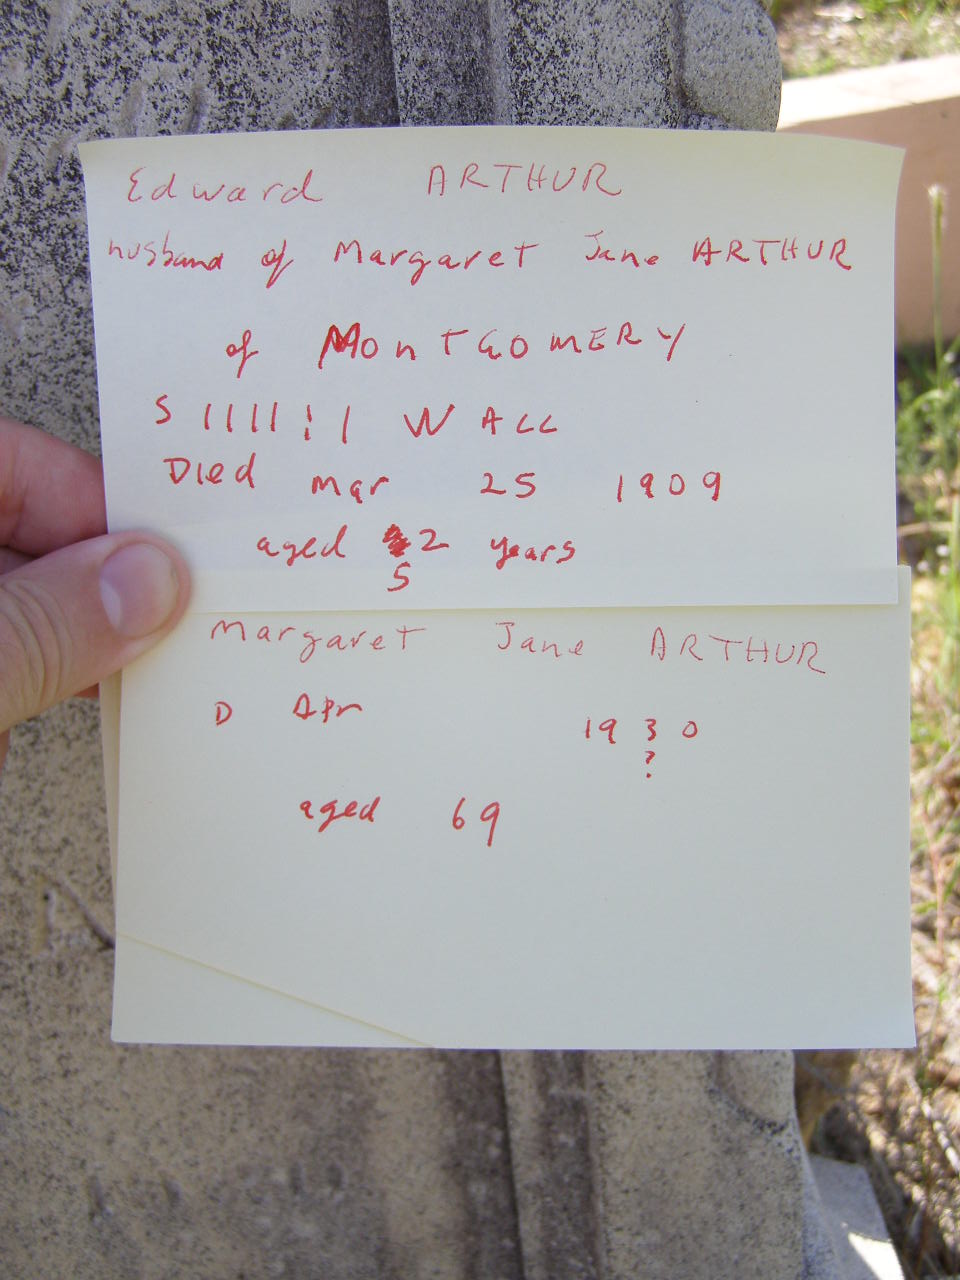 Edward ARTHUR
husband of Margaret Jane ARTHUR
of MONTGOMERY
S ||||¦| WALL
Died Mar 25 1909
aged 2 years
5
Margaret Jane ARTHUR
D Apr 1930
?
aged 69